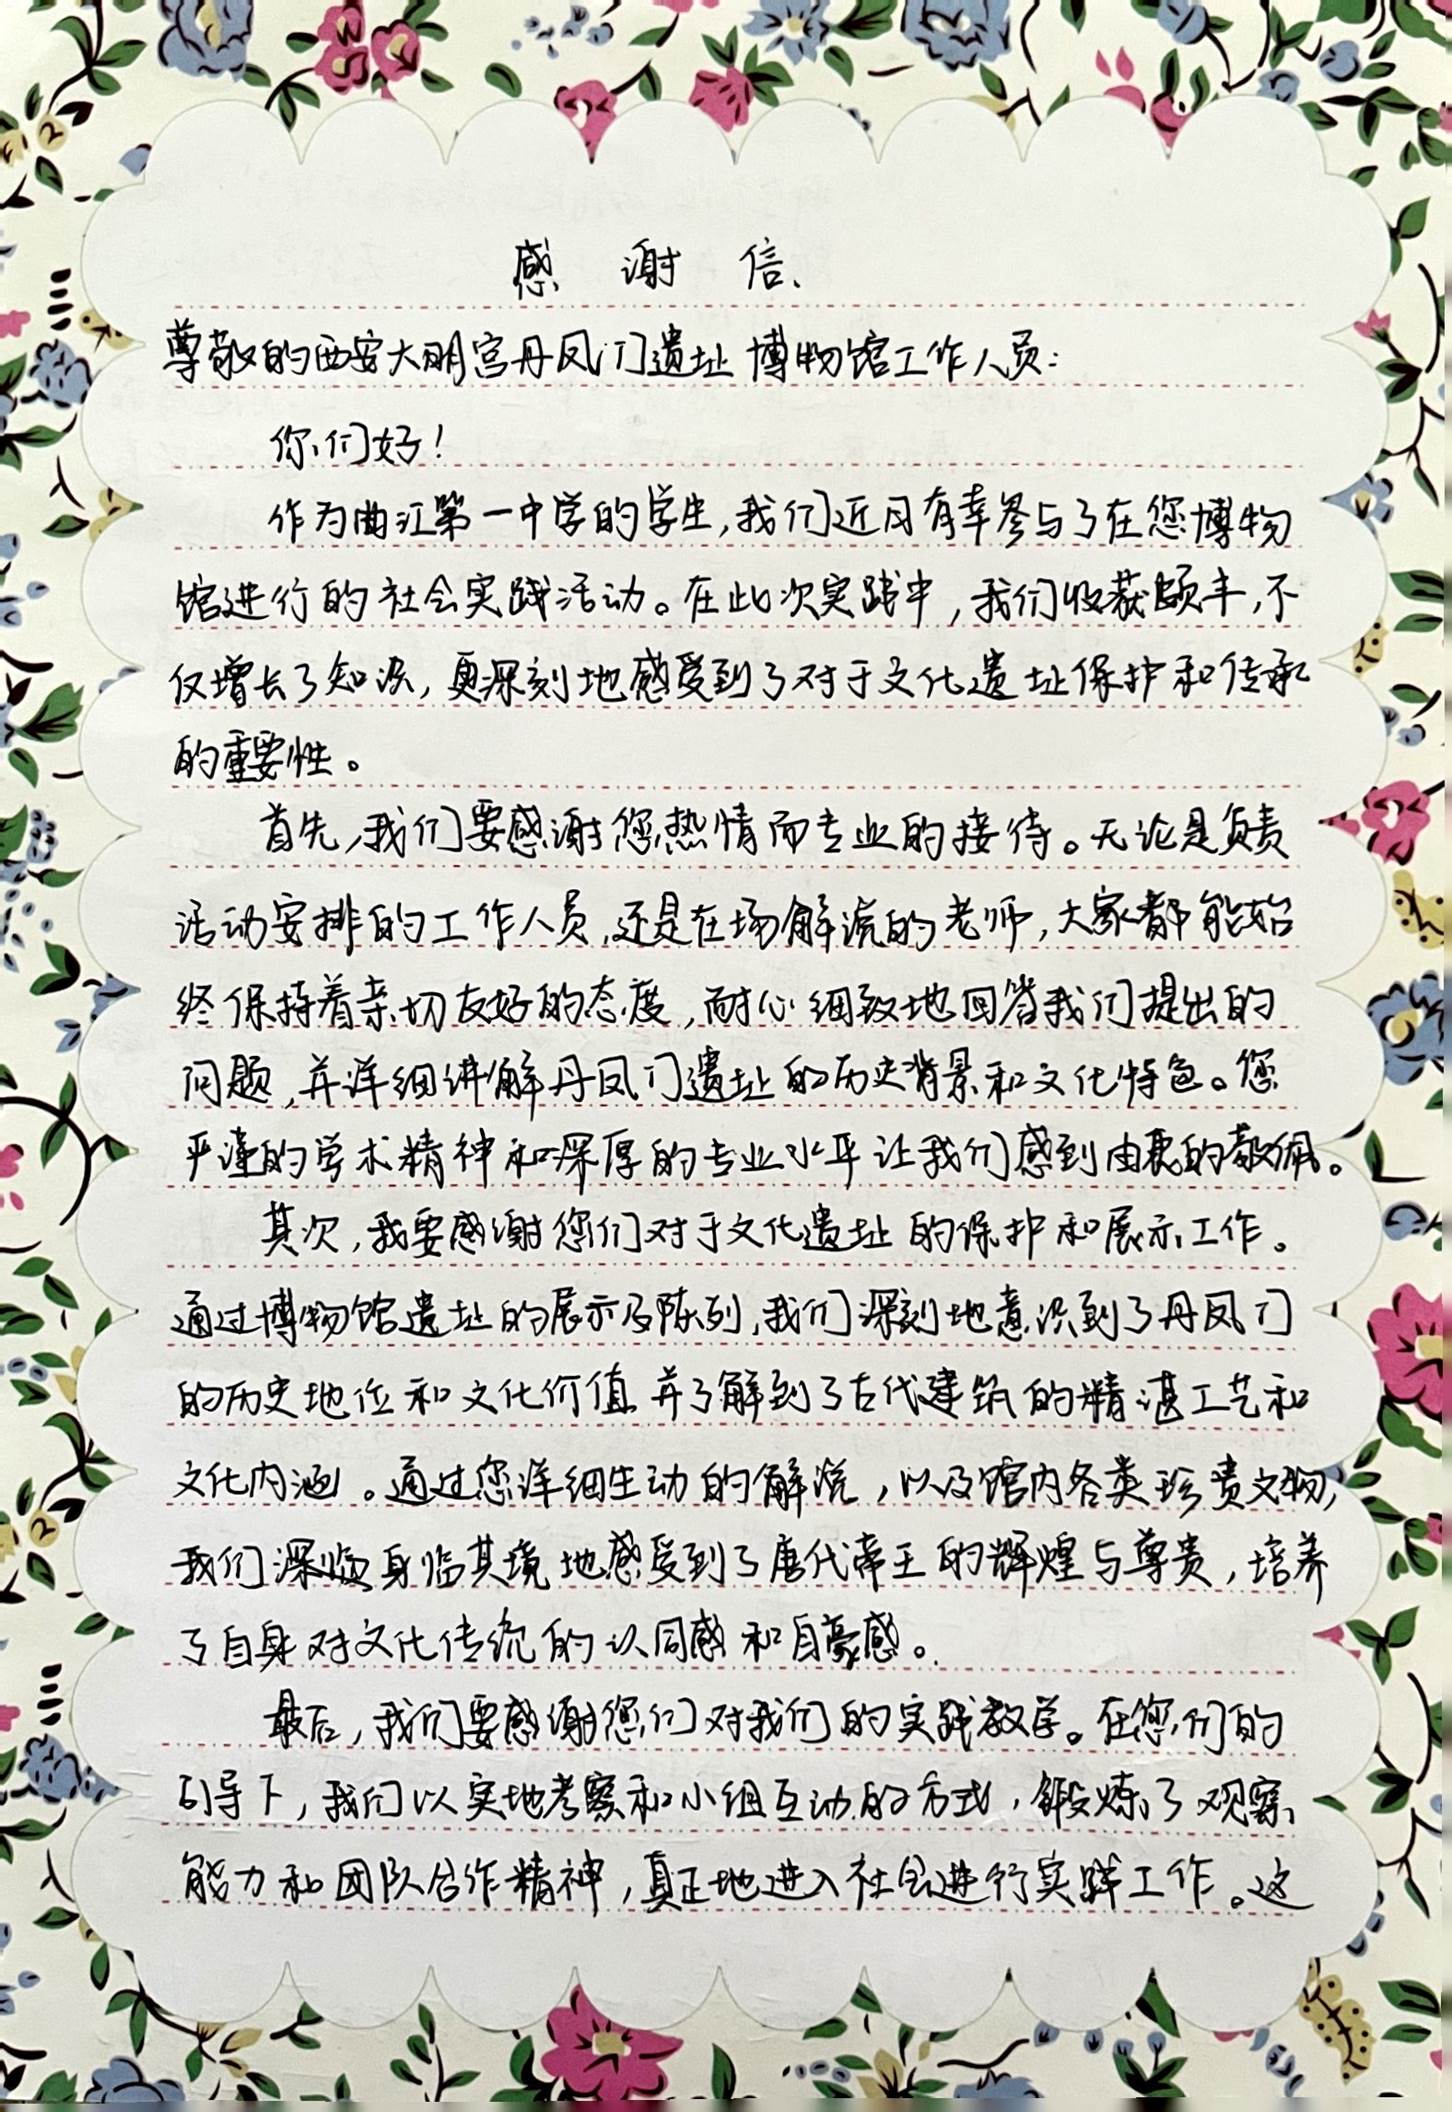 感谢信
尊敬的西安大明宫丹凤门遗址博物馆工作人员：
你们好！
作为曲江第一中学的学生，我们近日有幸参与了在您博物
馆进行的社会实践活动。在此次实践中，我们收获颇丰，不
仅增长了知识，更深刻地感受到了对于文化遗址保护和传承
的重要性。
首先，我们要感谢您热情而专业的接待。无论是负责
活动安排的工作人员，还是在场解说的老师，大家都能始
终保持着亲切友好的态度，耐心细致地回答我们提出的
问题，并详细讲解丹凤门遗址的历史背景和文化特色。您
严谨的学术精神和深厚的专业水平让我们感到由衷的敬佩。
其次，我要感谢您们对于文化遗址的保护和展示工作。
通过博物馆遗址的展示及陈列，我们深刻地意识到了丹凤门
的历史地位和文化价值，并了解到了古代建筑的精湛工艺和
文化内涵。通过您详细生动的解说，以及馆内各类珍贵文物，
我们深临身临其境地感受到了唐代帝王的辉煌与尊贵，培养
了自身对文化传统的认同感和自豪感。
最后，我们要感谢您们对我们的实践教学。在您们的
引导下，我们以实地考察和小组互动的方式，锻炼了观察
能力和团队合作精神，真正地进入社会进行实践工作。这